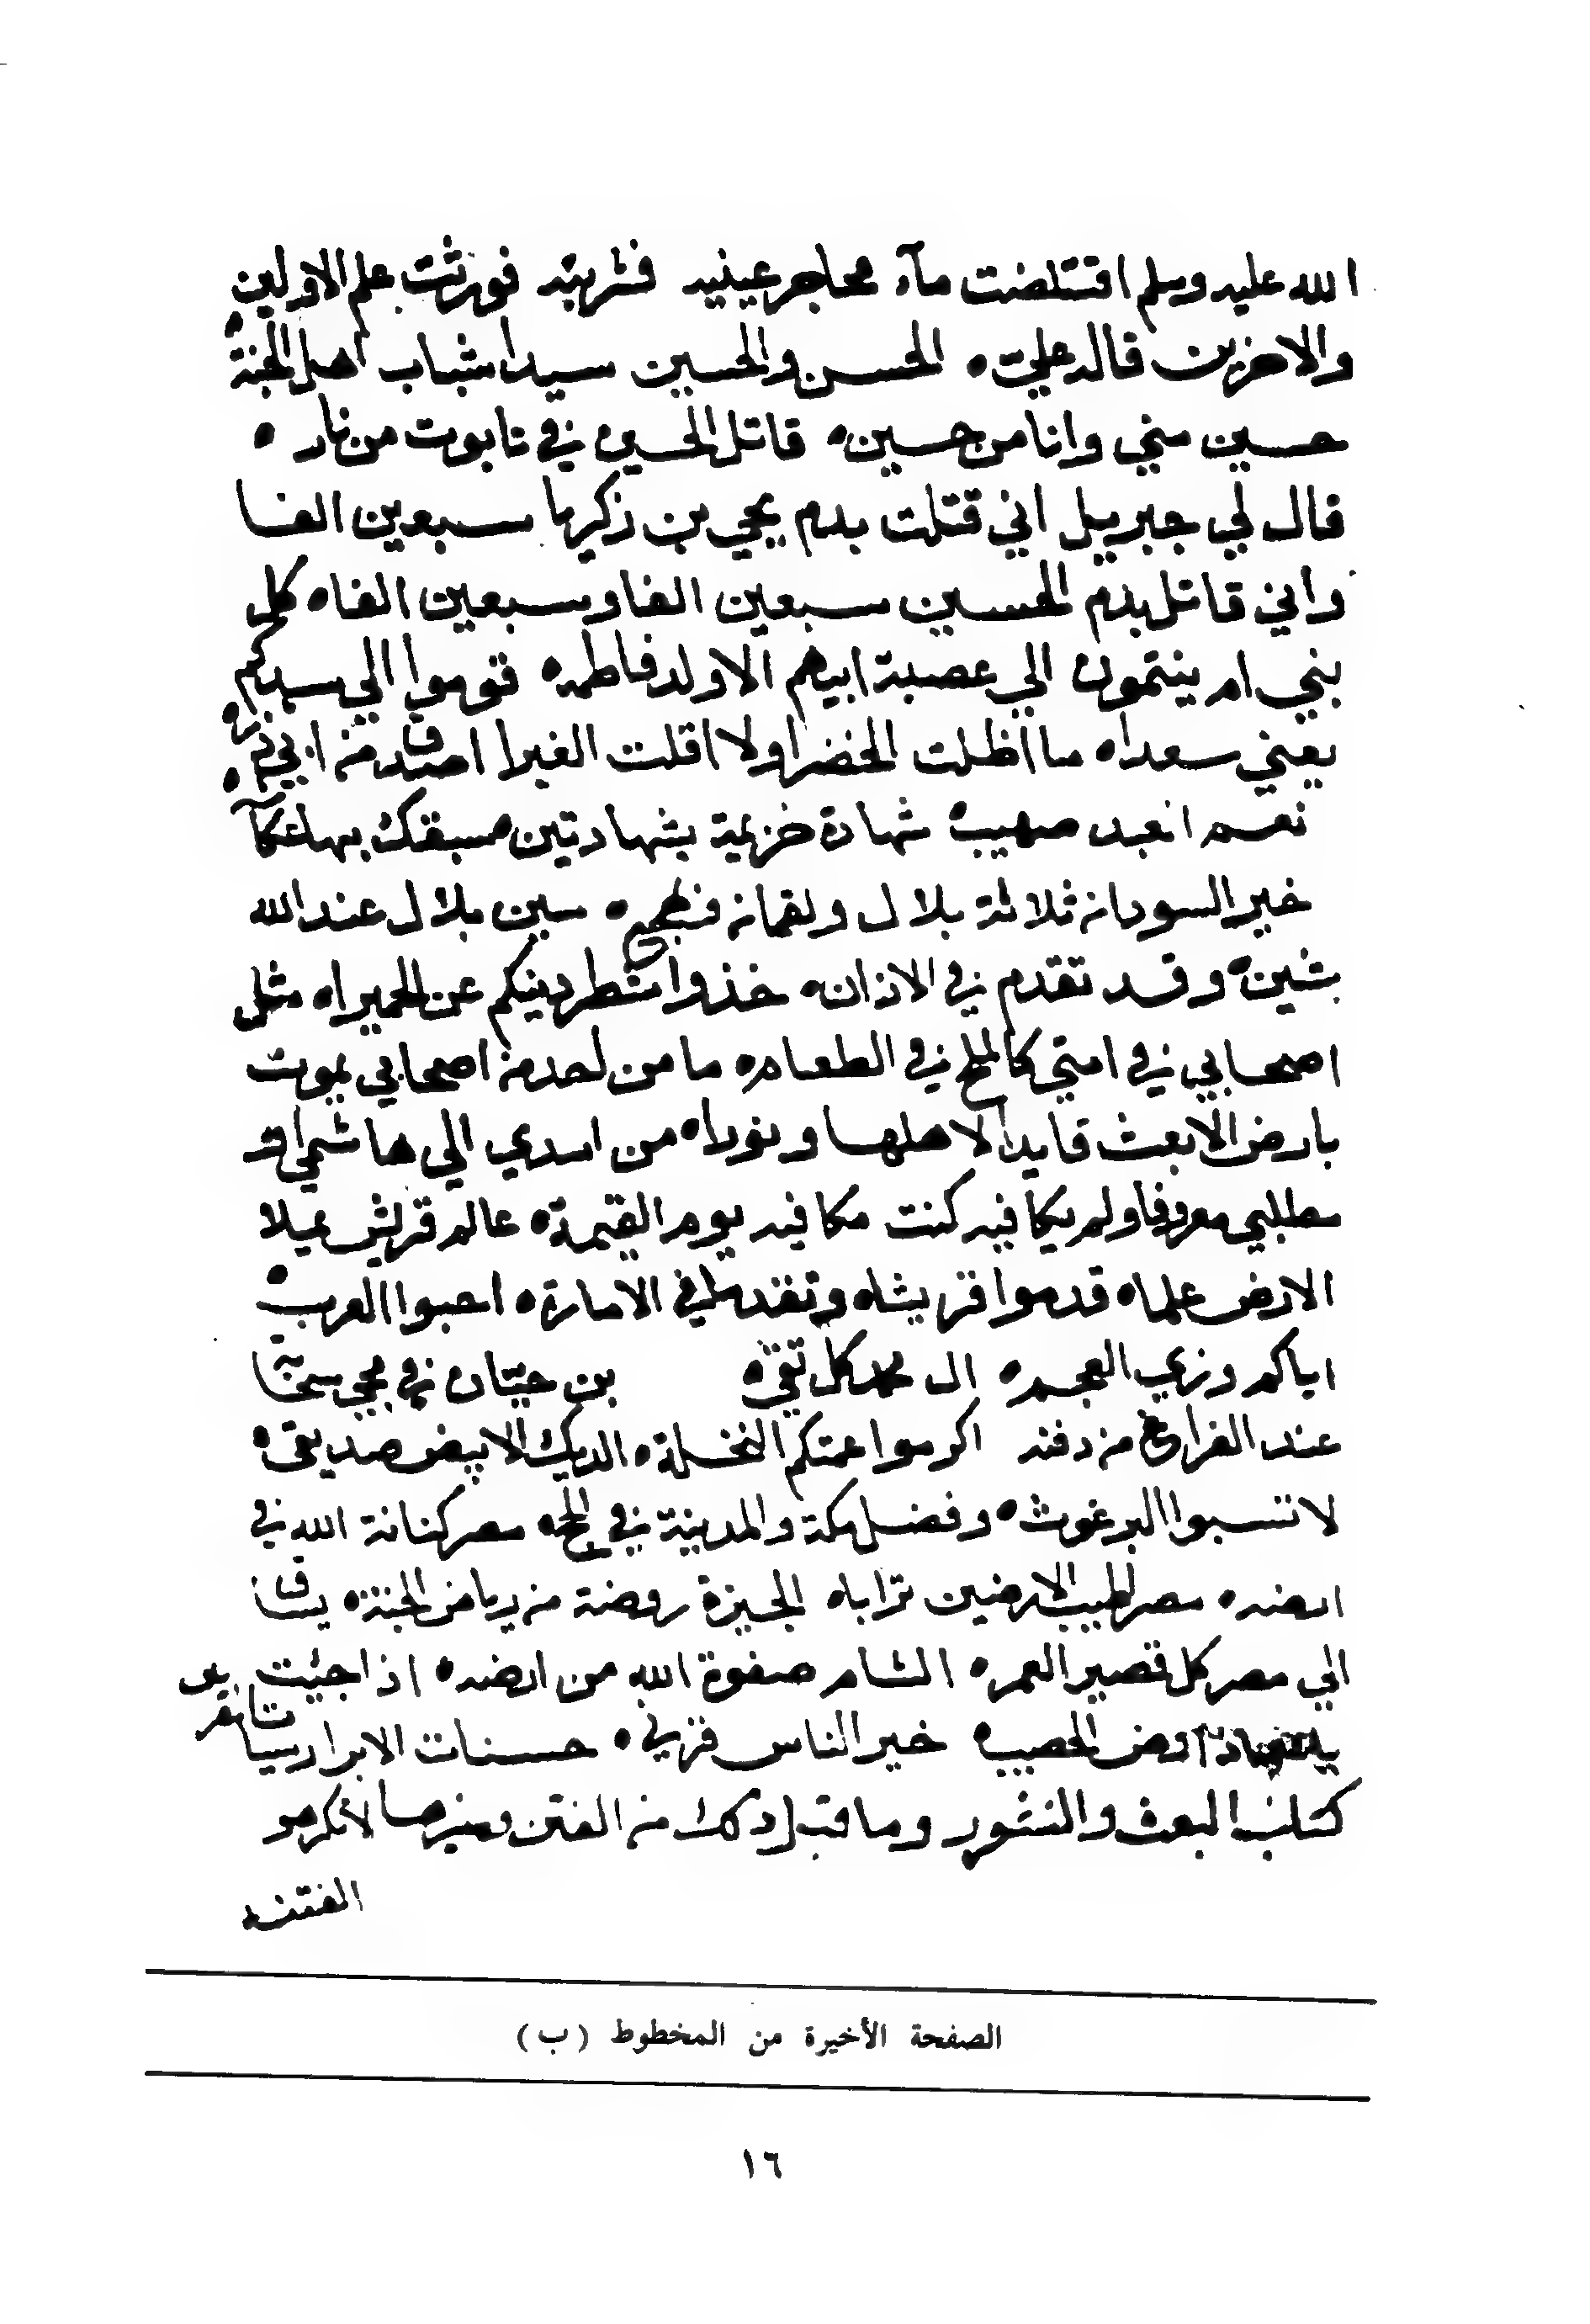 الله عليه وسلم اقتلصت مآء محاجر عينيه فشربته فورثت علم الاولين
والاخرين قاله علي ه الحسن والحسين سيدا شباب اهل الجنة ه
حسين مني وانا من حسين ه قاتل الحسين في تابوت من نار ه
قال لي جبريل اني قتلت بدم يحيي بن زكريا سبعين الفا
واني قاتل بدم الحسين سبعين الفا وسبعين الفا ه كل
بني ام ينتمون الي عصبة ابيهم الا ولد فاطمه ه قوموا الي سيدكم
يعني سعدا ه ما اظلت الخضرا ولا اقلت الغبرا اصدق من ابي ذر ه
نعم العبد صهيب ه شهادة خزيمة بشهادتين ه سبقك بها عكآ
خير السودان ثلاثة بلال ولقمان ومهجع ه سين بلال عند الله
شين ه وقد تقدم في الاذان ه خذوا شطر دينكم عن الحميرا ه مثل
اصحابي في امتي كالملح في الطعام ه ما من احد من اصحابي يموت
بارض الا بعث قايدا لاهلها ونورا ه من اسدي الي هاشمي او
مطلبي معروفا ولم يكافيه كنت مكافيه يوم القيمة ه عالم قريش يملا
الارض علما ه قدموا قريشا ه وتقدم في الامارة ه احبوا العرب ه
اياكم وزي العجم ه ال محمد كل تقي ه بن حيتان في مجي سحابة
عند الفراغ من دفنه اكرموا عمتكم النخلة ه الديك الابيض صديقي ه
لا تسبوا البرغوث ه وفضل مكة والمدينة في الحج ه مصر كنانة الله في
ارضه ه مصر اطيب الارضين ترابا ه الجيزة روضة من رياض الجنة ه يساق
الي مصر كل قصير العمر ه الشام صفوة الله من ارضه ه اذا جئيت
ارض الحصيب ه خير الناس قرني ه حسنات الابرار سيات
كتاب البعث والنشور وما قبل ذلك من الفتن وغيرها لا تكرهو
الفتنه
الصفحة الأخيرة من المخطوط (ب)
١٦